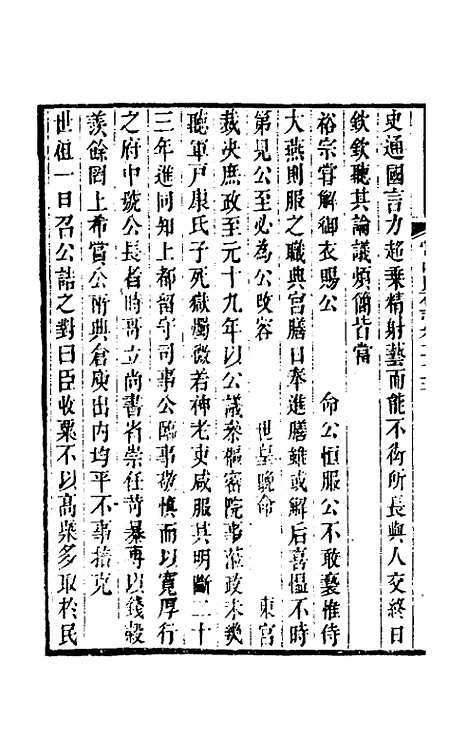 史通國言力超乘精射藝而能不衒所長與人交終日
欽欽聽其論議煩簡皆當
裕宗嘗解御衣賜公　命公恒服公不敢褻惟侍
大燕則服之職典宮膳日奉進膳雖或解后喜愠不時
第見公至必為公改容　世皇晚命　東宮
裁決庶政至元十九年以公議叅樞密院事蒞政未幾
聽軍戶康氏子死獄燭微若神老吏咸服其明斷二十
三年進同知上都留守司事公臨事敬慎而以寬厚行
之府中號公長者時哥立尚書省崇任苛暴專以錢穀
羡餘罔上希賞公所典倉庾出內均平不事掊克
世祖一日召公詰之對曰臣收粟不以高槩多取於民